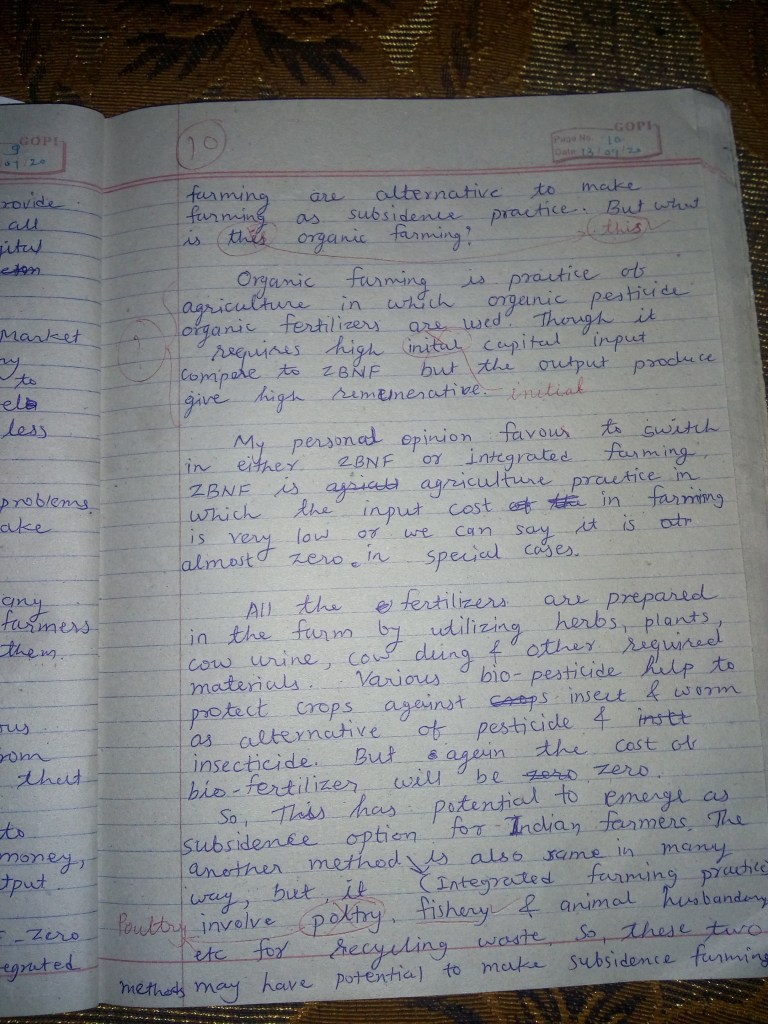 9 GOPI
07/20
rovide
all
gital
Market
ny
to
less
problems.
ake
any
farmers
them.
ous
rom
that
to
money,
tput.
F-Zero
egrated
10
GOPI
Page No. 10
Date 13/07/20
farming are alternative to make
farming as subsidence practice. But what
is this organic farming? this
Organic farming is practice of
agriculture in which organic pesticide
organic fertilizers are used. Though it
requires high inital capital input
compare to ZBNF but the output produce
give high rememerative. initial
My personal opinion favous to switch
in either ZBNF or integrated farming.
ZBNF is agriculture practice in
which the input cost of the in farming
is very low or we can say it is
almost zero in special cases.
All the fertilizers are prepared
in the farm by utilizing herbs, plants,
cow urine, cow dung & other required
materials. Various bio-pesticide help to
protect crops against crops insect & worm
as alternative of pesticide &
insecticide. But again the cost of
bio-fertilizer will be zero zero.
So, This has potential to emerge as
subsidence option for Indian farmers. The
another method is also same in many
way, but it (Integrated farming practice
Poultry involve poltry, fishery & animal husbandry
etc for recycling waste. So, these two
methods may have potential to make subsidence farming